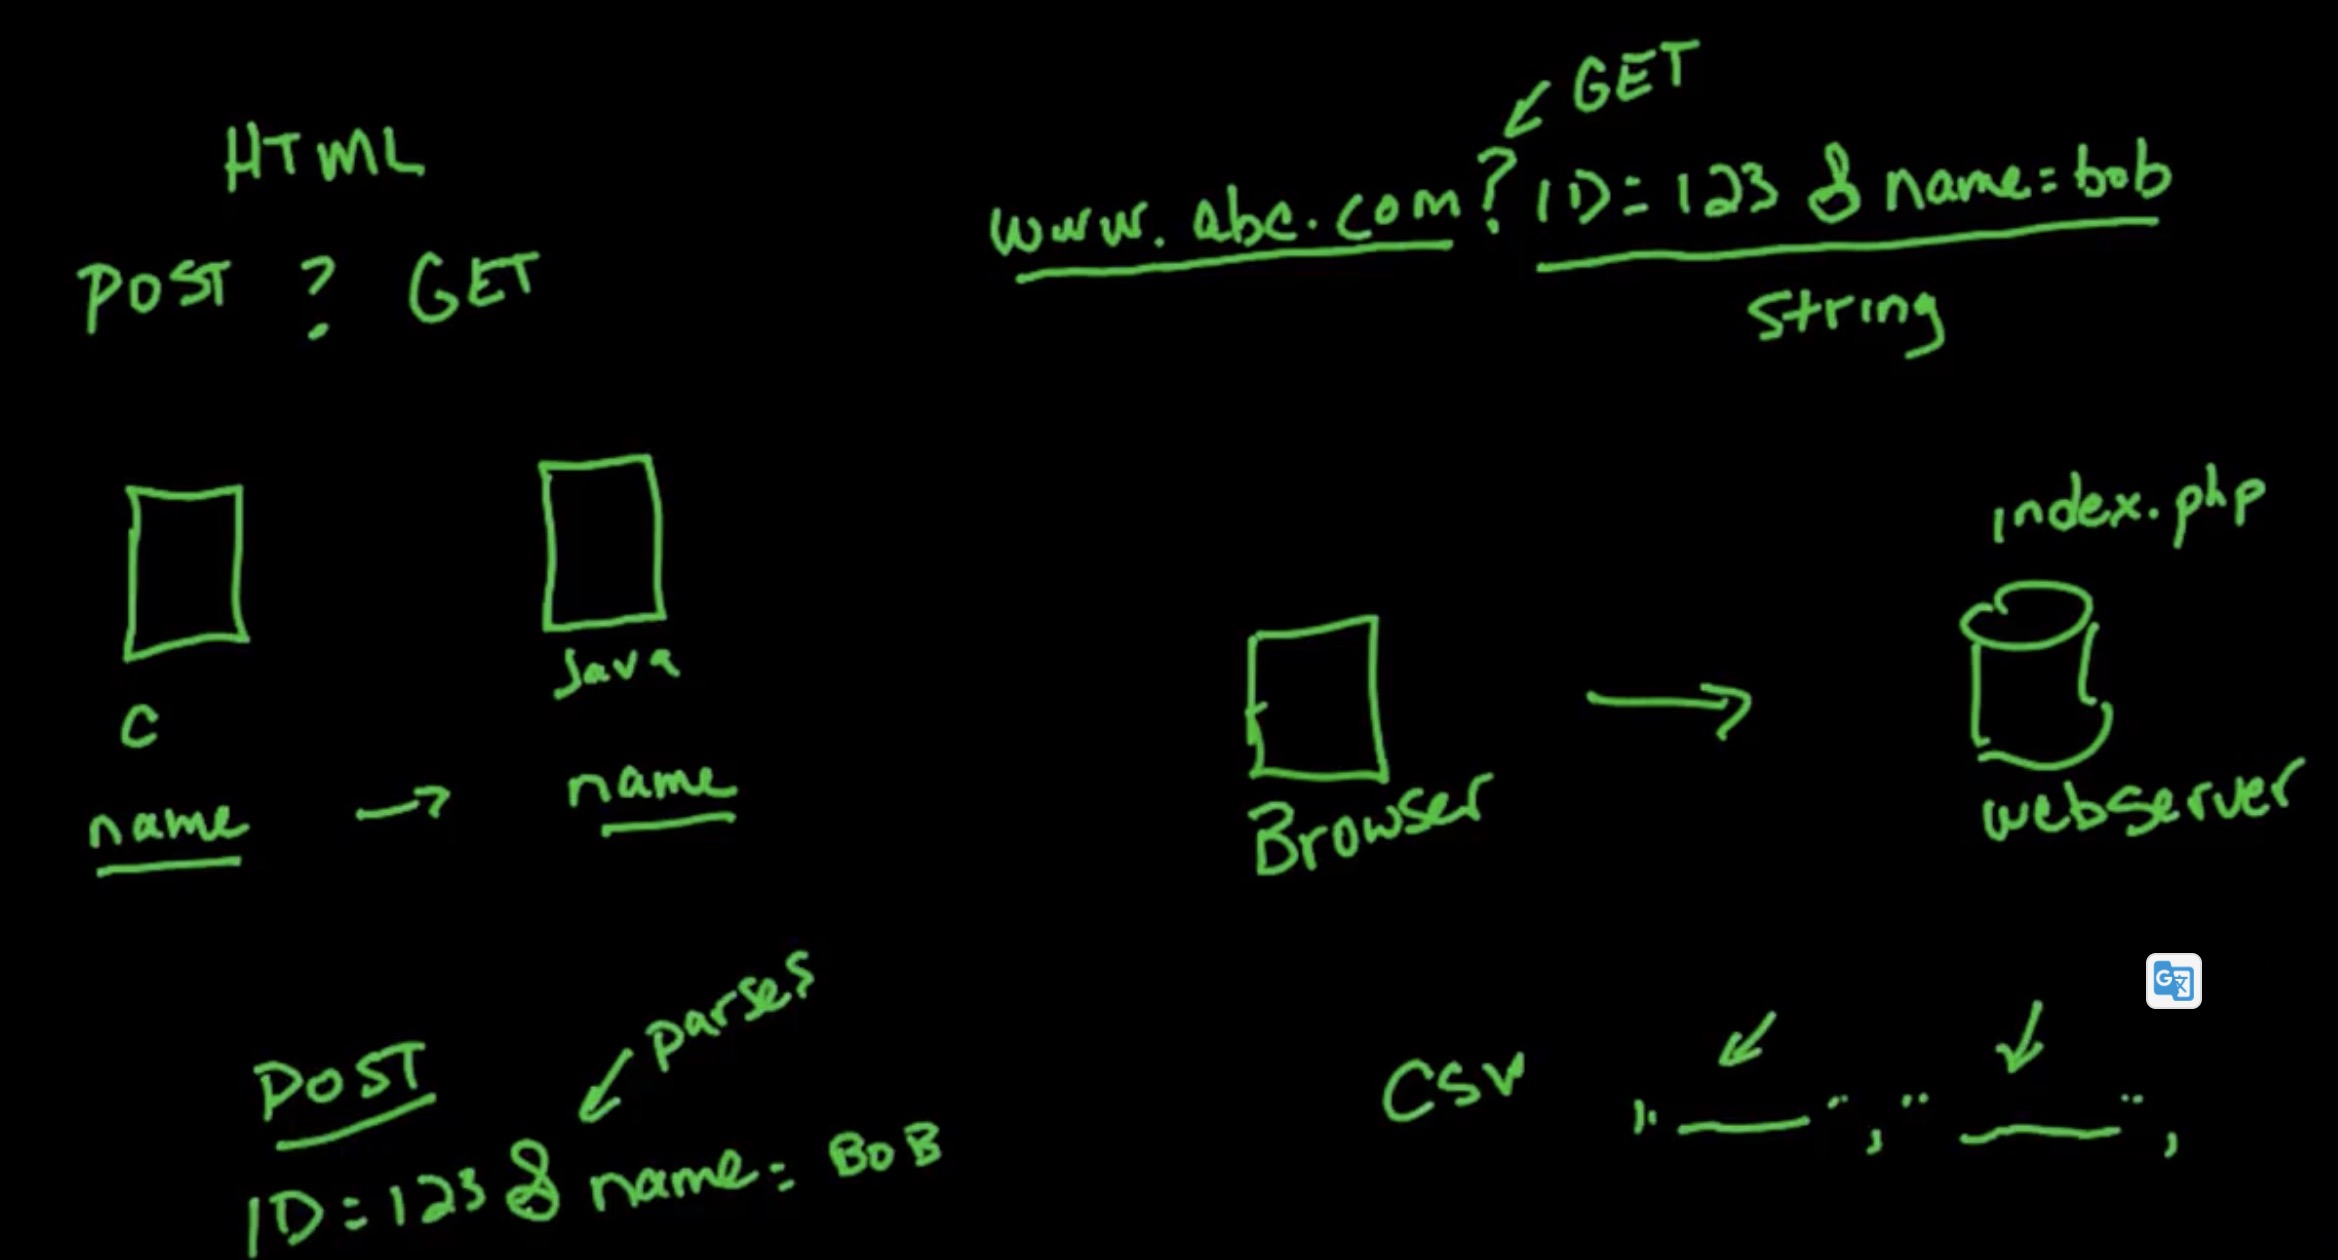 HTML
POST ? GET
GET
www.abc.com?ID=123 & name=bob
String
C
name → name
Java
index.php
Browser
webserver
parses
POST
ID=123 & name=BOB
CSV " ", " ",